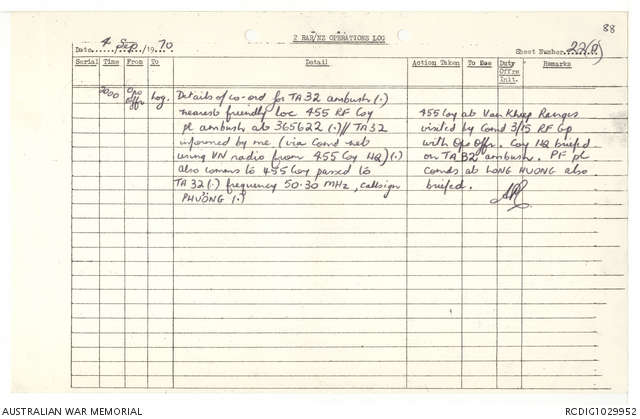 88
2 RAR/NZ OPERATIONS LOG
Date 4 Sep /19 70 Sheet Number 22(a)
Serial Time From To Detail Action Taken To Duty Offrs Init. Remarks
2000 Ops offr Log. Details of co-ord for TA32 ambush (.)
nearest friendly loc 455 RF Coy 455 Coy at Van Khiep Ranges
pl ambush at 365622 (.)// TA32 visited by Comd 3/15 RF Gp
informed by me (via Comd net with Ops Offr. Coy HQ briefed
using VN radio from 455 Coy HQ) (.) on TA32 ambush. PF pl
also comms to 455 Coy passed to comds at LONG HUONG also
TA32 (.) frequency 50.30 MHz, callsign briefed.
PHUONG (.)
AUSTRALIAN WAR MEMORIAL RCDIG1029952